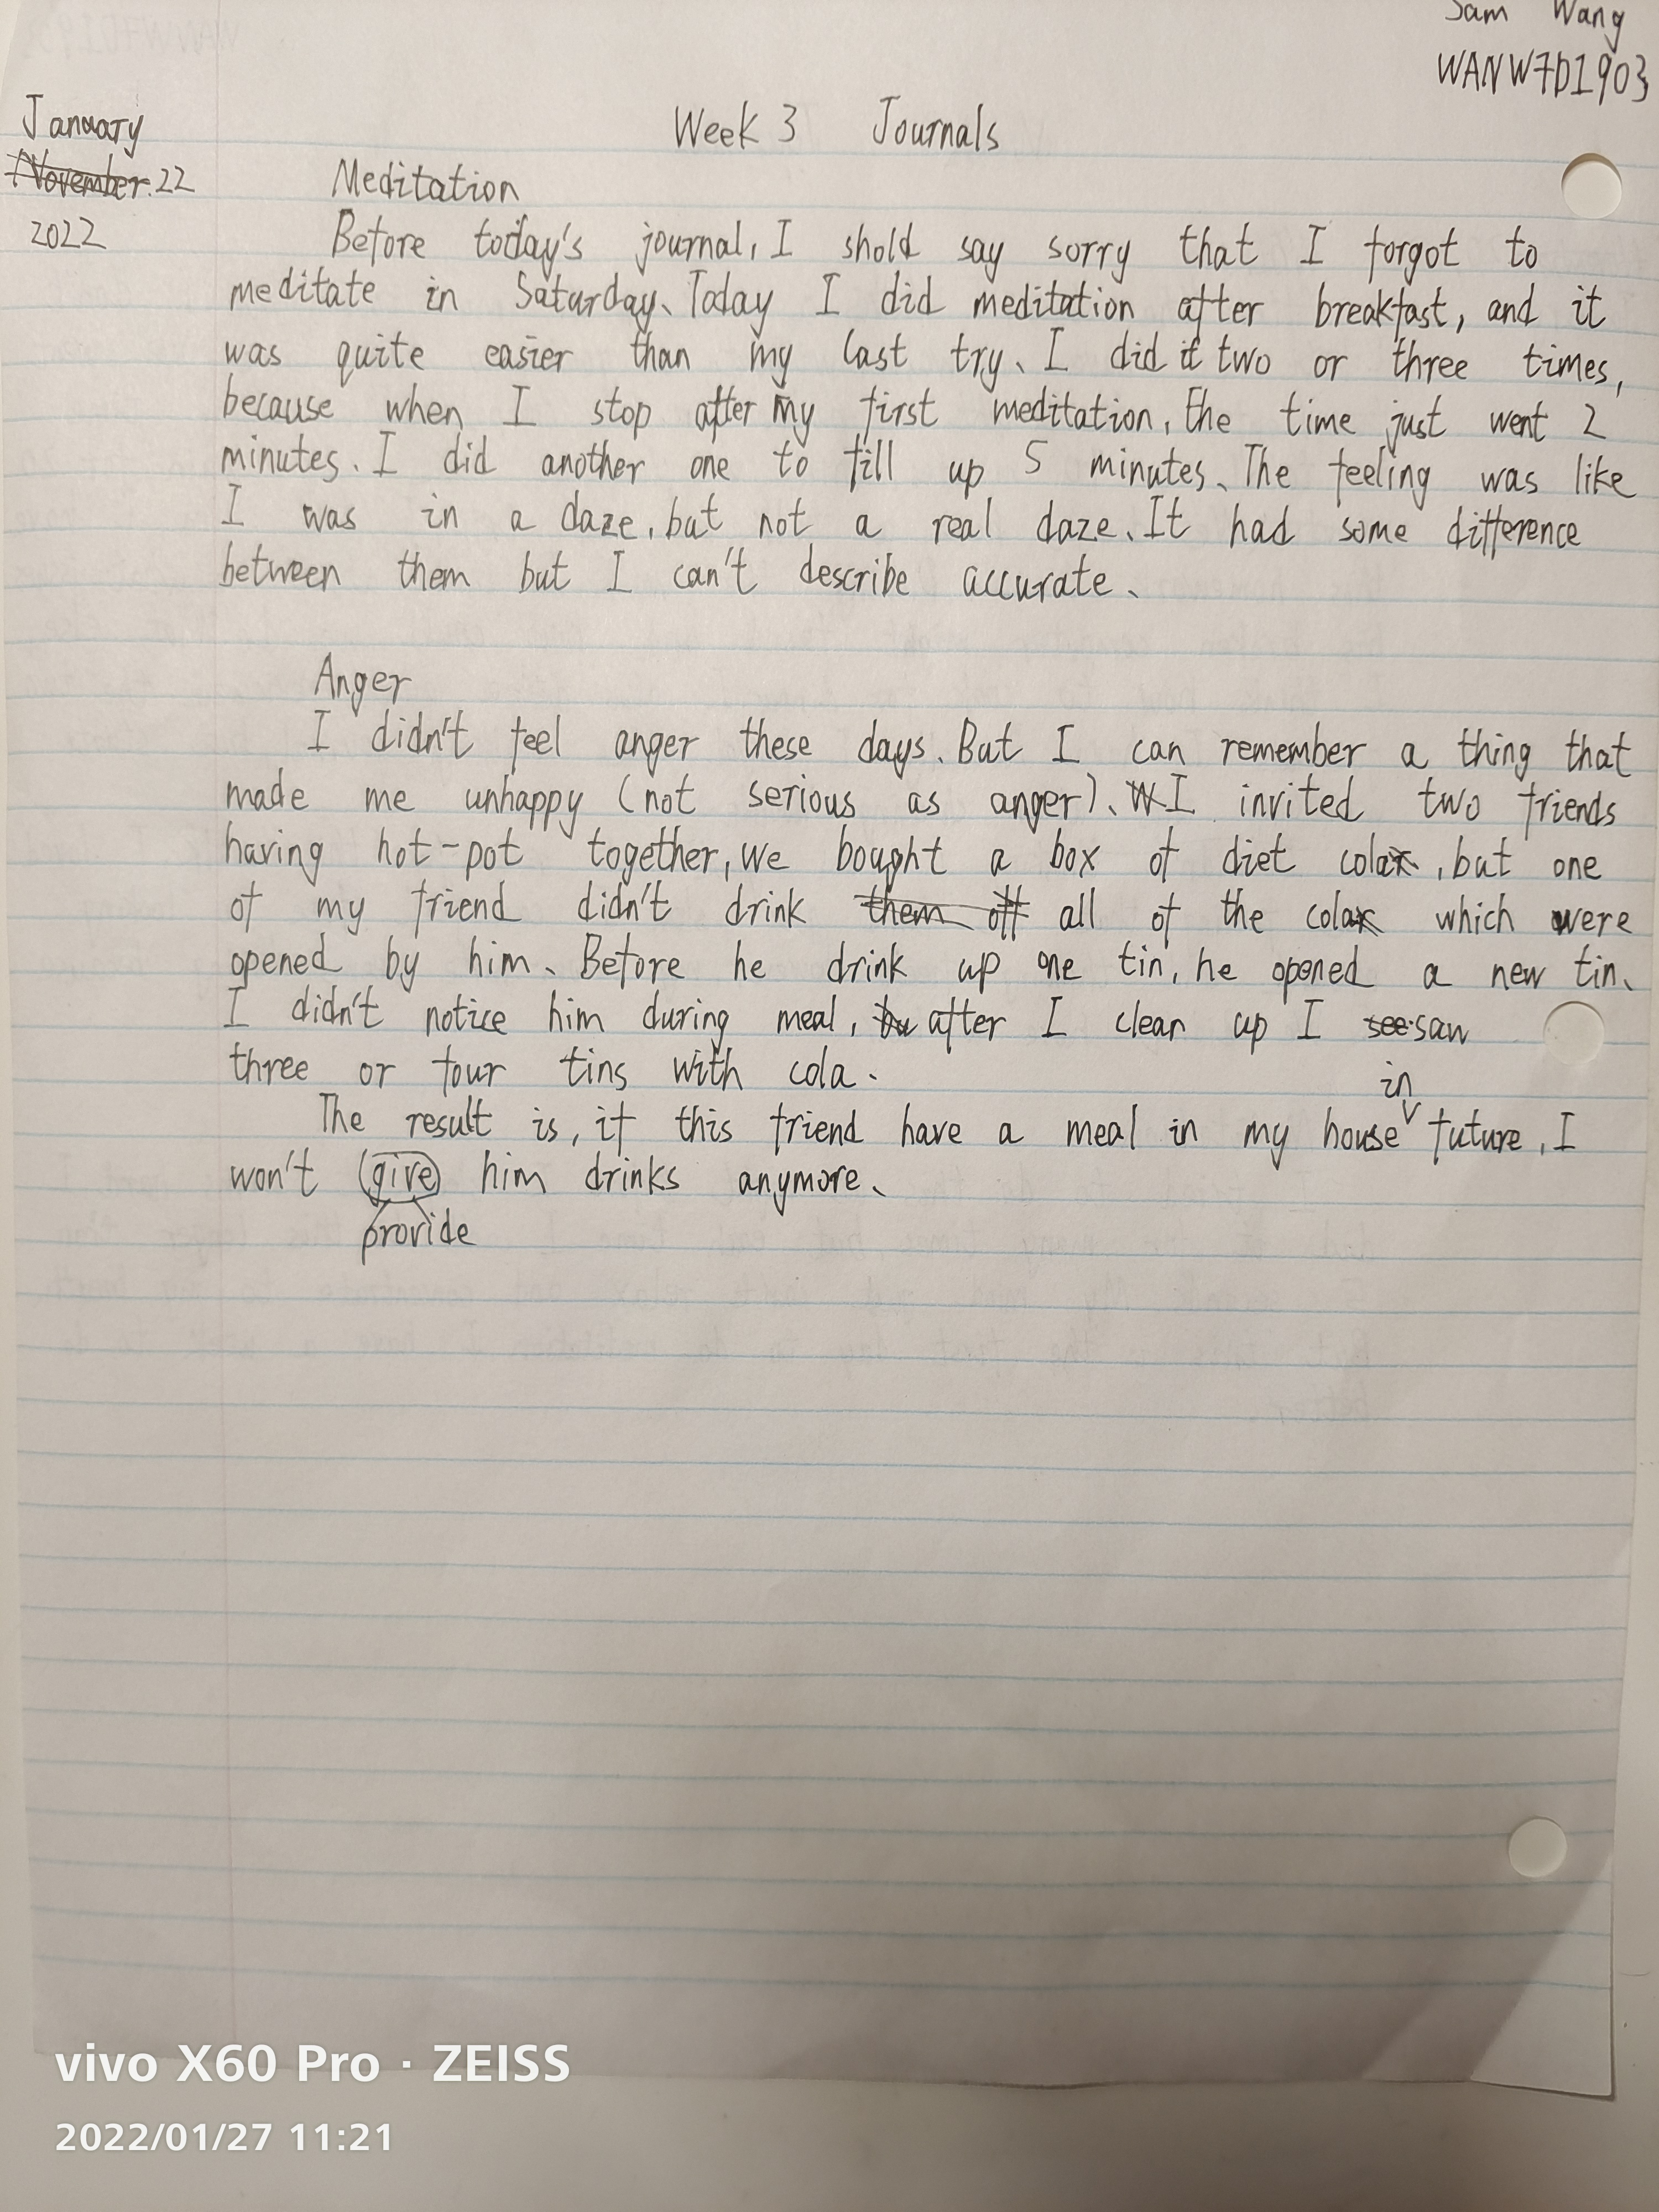 Sam Wang
WANW7D1903
January
Week 3 Journals
November.22
2022
Meditation
Before today's journal, I shold say sorry that I forgot to
meditate in Saturday. Today I did meditation after breakfast, and it
was quite easier than my last try. I did it two or three times,
because when I stop after my first meditation, the time just went 2
minutes. I did another one to fill up 5 minutes. The feeling was like
I was in a daze, but not a real daze. It had some difference
between them but I can't describe accurate.
Anger
I didn't feel anger these days. But I can remember a thing that
made me unhappy (not serious as anger). I invited two friends
having hot-pot together, we bought a box of diet cola, but one
of my friend didn't drink them off all of the cola which were
opened by him. Before he drink up one tin, he opened a new tin.
I didn't notice him during meal, bu after I clear up I see saw
three or four tins with cola.
in
The result is, if this friend have a meal in my house future, I
won't (give) him drinks anymore.
provide
vivo X60 Pro · ZEISS
2022/01/27 11:21